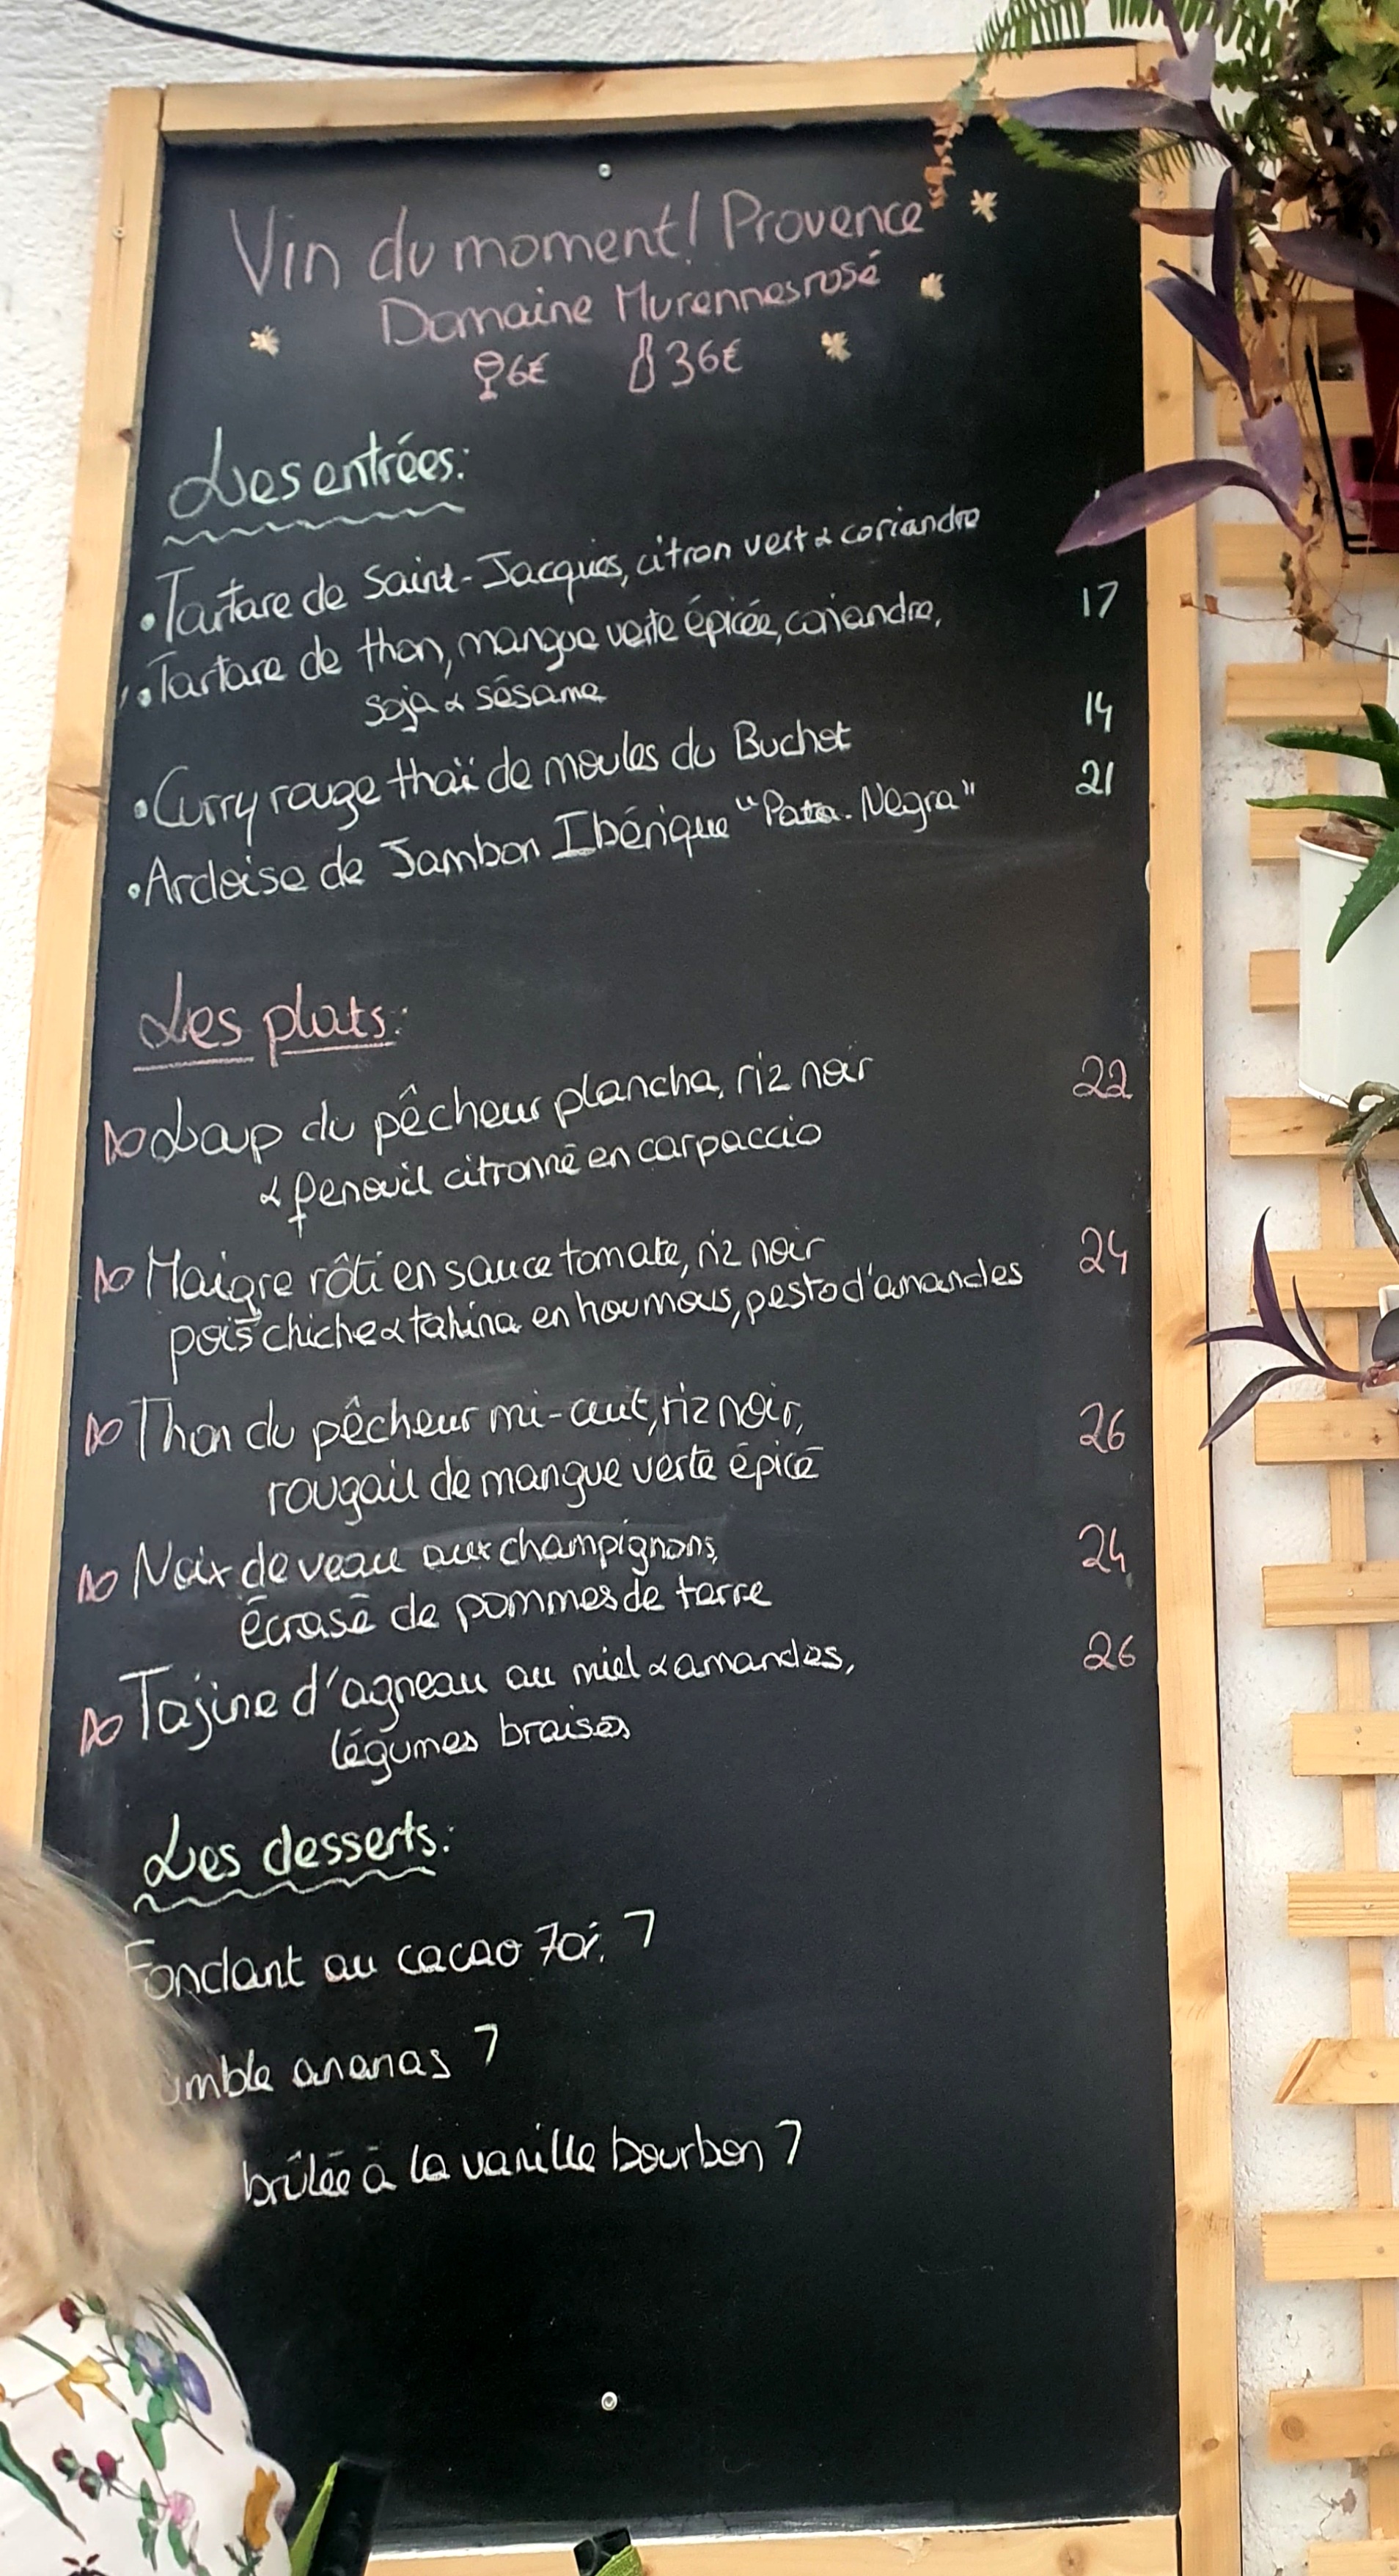 Vin du moment! Provence
Domaine Murennes rosé
6€ 36€
Les entrées:
• Tartare de Saint-Jacques, citron vert & coriandre
• Tartare de thon, mangue verte épicée, coriandre, 17
soja & sésame
• Curry rouge thaï de moules du Buchot 14
• Ardoise de Jambon Ibérique "Pata. Negra" 21
Les plats:
Loup du pêcheur plancha, riz noir 22
& fenouil citronné en carpaccio
Maigre rôti en sauce tomate, riz noir 24
pois chiche & tahina en houmous, pesto d'amandes
Thon du pêcheur mi-cuit, riz noir, 26
rougail de mangue verte épicé
Noix de veau aux champignons, 24
écrasé de pommes de terre
Tajine d'agneau au miel & amandes, 26
légumes braisés
Les desserts:
Fondant au cacao 70%. 7
umble ananas 7
brûlée à la vanille bourbon 7